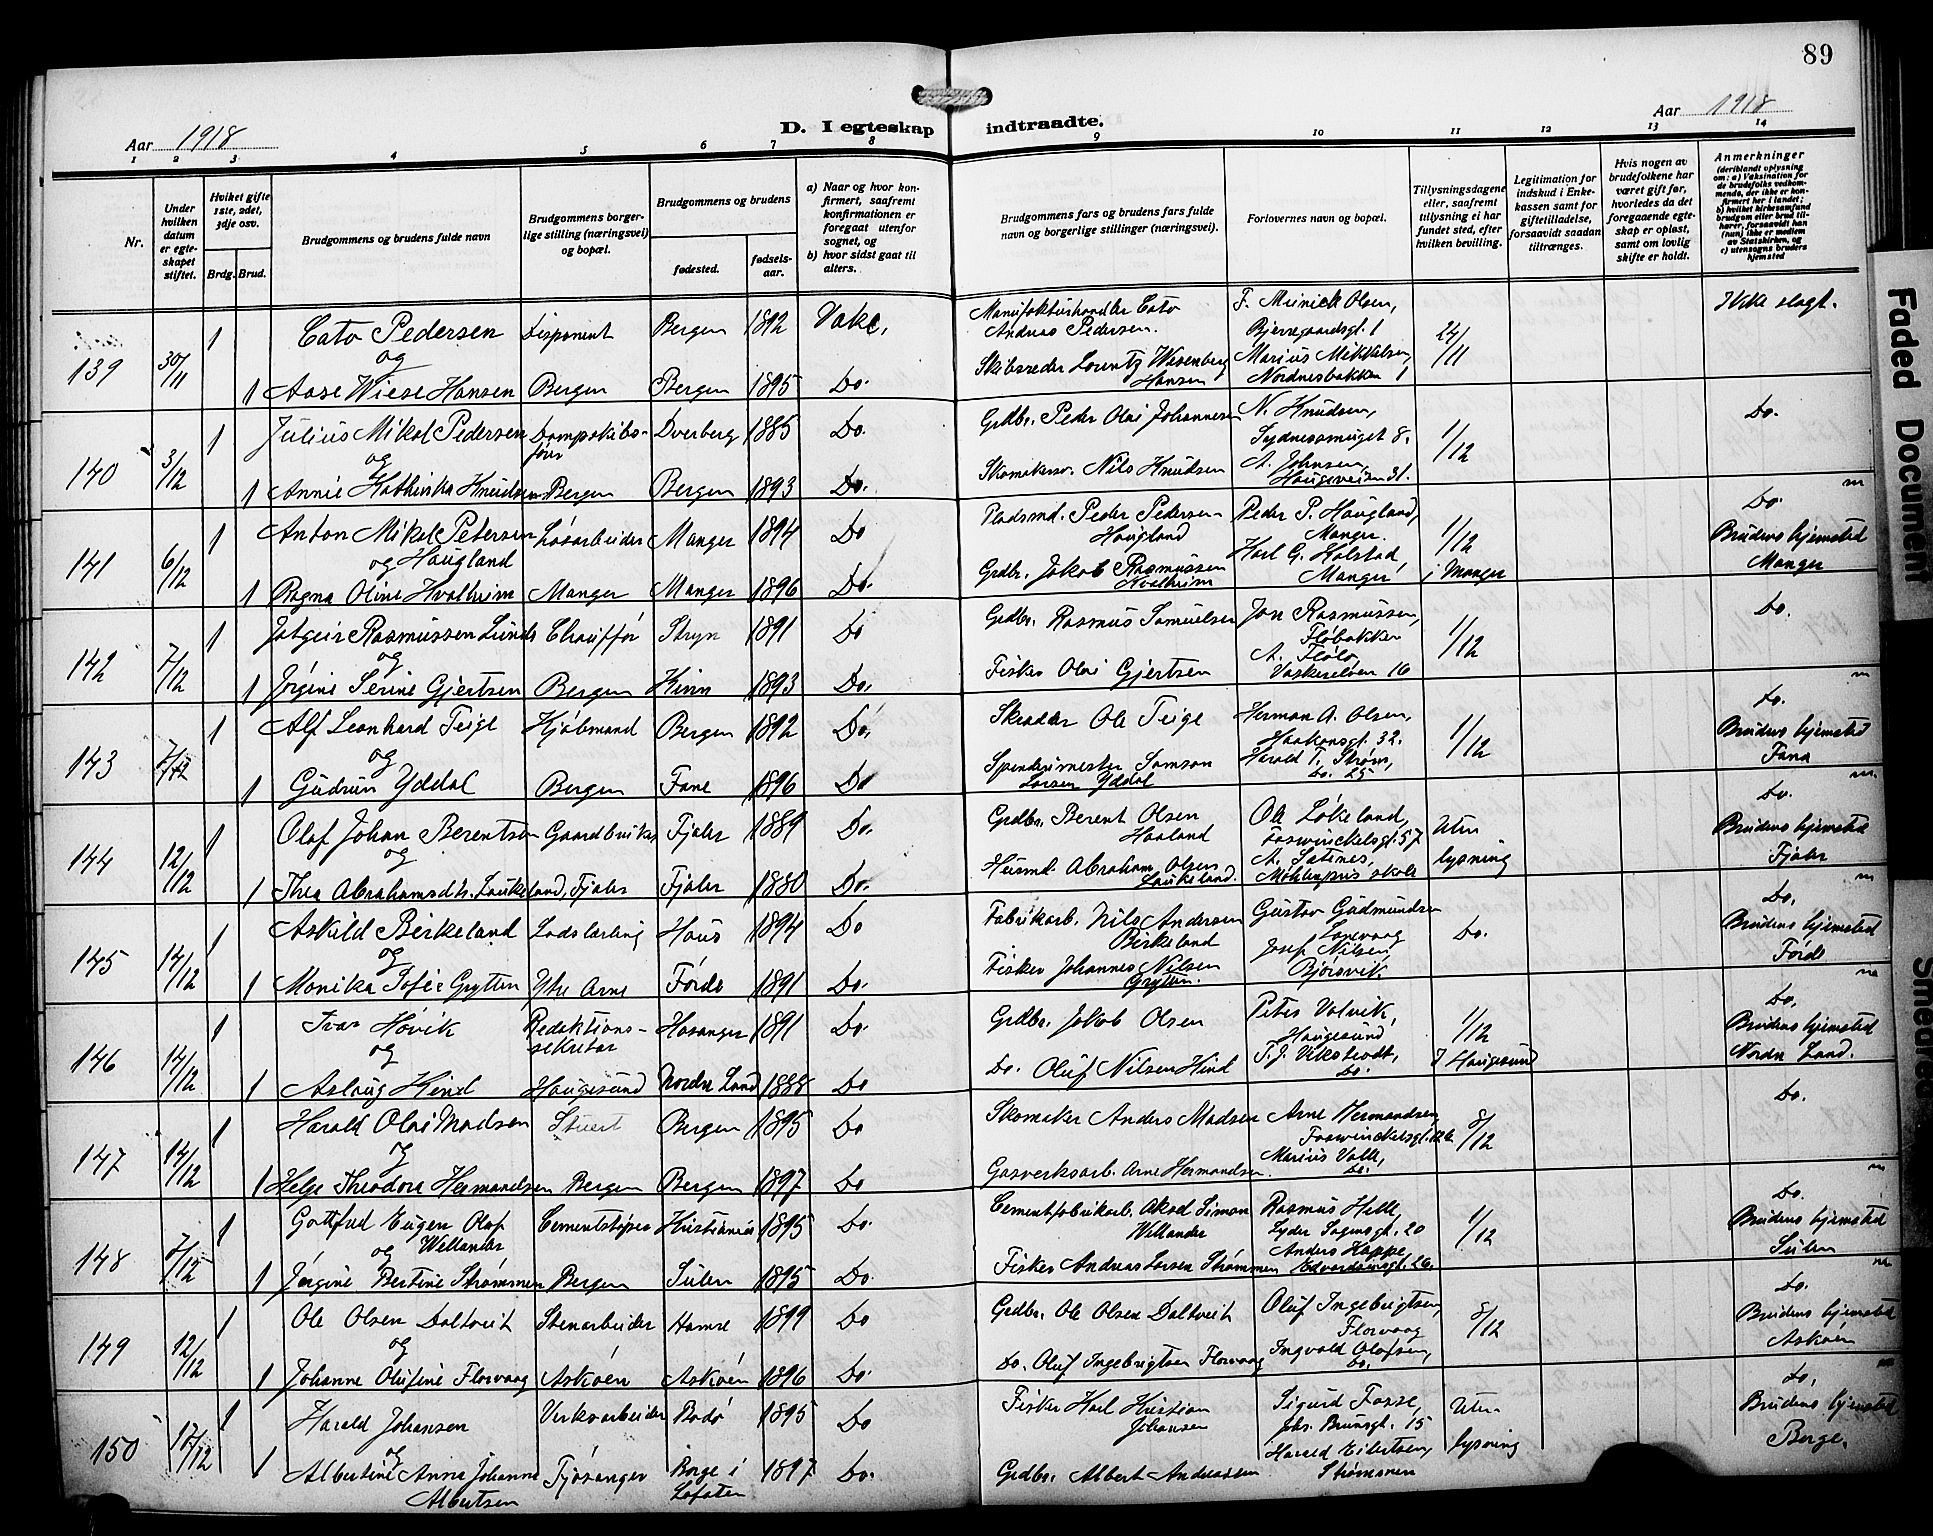 89
Aar 1918
D. I egteskap indtraadte.
Aar 1918
1 2 3 4 5 6 7 8 9 10 11 12 13 14
Nr.
Under hvilken datum er egteskapet stiftet.
Hvilket gifte 1ste, 2det, 3dje osv.
Brdg. Brud.
Brudgommens og brudens fulde navn
Brudgommens borgerlige stilling (næringsvei) og bopæl.
Brudgommens og brudens
fødested.
fødselsaar.
a) Naar og hvor konfirmert, saafremt konfirmationen er foregaat utenfor sognet, og
b) hvor sidst gaat til alters.
Brudgommens fars og brudens fars fulde navn og borgerlige stillinger (næringsvei).
Forlovernes navn og bopæl.
Tillysningsdagene eller, saafremt tillysning ei har fundet sted, efter hvilken bevilling.
Legitimation for indskud i Enkekassen samt for giftetilladelse, forsaavidt saadan tiltrænges.
Hvis nogen av brudefolkene har været gift før, hvorledes da det foregaaende egteskap er opløst, samt om lovlig skifte er holdt.
Anmerkninger
(deriblandt oplysning om: a) Vaksination for de brudefolks vedkommende, der ikke er konfirmert her i landet; b) hvilket kirkesamfund brudgom eller brud tilhører, forsaavidt han (hun) ikke er medlem av Statskirken, og c) utensogns bruders hjemsted
139 30/11 1 Cato Pedersen Disponent Bergen 1892 Vake. Manufakturhandler Cato Andreas Pedersen. F. Meinich Olsen, Bjerregaardsgt. 1 24/11 Ikke slegt.
og
1 Aase Wiese Hansen Bergen Bergen 1895 Do. Skibsreder Lorentz Wesenberg Hansen Marius Mikkelsen, Nordnesbakken 1
140 3/12 1 Julius Mikal Pedersen Dampskibsfører Dverberg 1885 Do. Grdbr. Peder Olai Johannesen N. Knudsen, Sydnessmuget 8. 1/12 Do.
og
1 Annie Kathinka Knudsen Bergen Bergen 1893 Do. Skomakersv. Nils Knudsen A. Johnsen, Haugeveien 31.
141 6/12 1 Anton Mikal Petersen Haugland Løsarbeider Manger 1894 Do Pladsmd. Peder Pedersen Haugland Peder P. Haugland, Manger. 1/12 i Manger Do Brudens hjemsted Manger
og
1 Ragna Oline Kvalheim Manger Manger 1896 Do. Grdbr. Jakob Rasmussen Kvalheim Karl G. Halstad Manger
142 7/12 1 Rasmussen Lunde Chauffør Stryn 1891 Do Grdbr. Rasmus Samuelsen Jon Rasmussen, Fløbakken 1/12 Do.
og
1 Jørgine Serine Gjertsen Bergen Kinn 1893 Do. Fisker Olai Gjertsen A. Flølo Vaskerelven 16
143 7/12 1 Alf Leonhard Teige Kjøbmand Bergen 1892 Do. Skrædder Ole Teige Herman A. Olsen, Haakonsgt. 32. 1/12 Do. Brudens hjemsted Fana
og
1 Gudrun Yddal Bergen Fane 1896 Do Spinderimester Samson Larsen Yddal Harald T. Strøm, Do. 25
144 12/12 1 Olaf Johan Berentsen Gaardbruker Fjaler 1889 Do. Grdbr. Berent Olsen Haaland Ole Løkeland, Forswinckelsgt. 57 Uten lysning Do. Brudens hjemsted Fjaler
og
1 Thea Abrahamsdtr. Laukeland, Fjaler Fjaler 1880 Do. Husmd. Abraham Olsen Laukeland. A. Sætines, Møhlenpris skole
145 14/12 1 Askild Birkeland Lodslærling Haus 1894 Do Fabrikarb. Nils Andersen Birkeland Gustav Gudmundsen Lonevaag Do. Do. Brudens hjemsted Førde
og
1 Monika Sofie Grytten Ytre Arne Førde 1891 Do. Fisker Johannes Nilsen Grytten. Josef Nilsen, Bjørsvik
146 14/12 1 Ivar Høvik Redaktionssekretær Hosanger 1891 Do. Grdbr. Jakob Olsen Peter Valvik, Haugesund, 1/12 I Haugesund Do. Brudens hjemsted Nordre Land.
og
1 Aslaug Hind Haugesund Nordre Land 1888 Do Do. Oluf Nilsen Hind T. J. Vikstvedt, Do.
147 14/12 1 Harald Olai Madsen Stuert Bergen 1895 Do Skomaker Anders Madsen Arne Hermandsen, Forswinckelsgt. 126 8/12 Do.
og
1 Helga Theodora Hermandsen Bergen Bergen 1897 Do Gasverksarb. Arne Hermandsen. Marius Valle, Do.
148 7/12 1 Gottfred Eugen Olof Wellander Cementstøper Kristiania 1895 Do. Cementfabrikarb. Aksel Simon Wellander Rasmus Helle, Lyder Sagensgt. 20 1/12 Do. Brudens hjemsted Sulen
og
1 Jørgine Bertine Strømmen Bergen Sulen 1895 Do. Fisker Andreas Larsen Strømmen Anders Kappe, Edvardsensgt. 26.
149 12/12 1 Ole Olsen Daltveit Stenarbeider Hamre 1899 Do Grdbr. Ole Olsen Daltveit Oluf Ingebrigtsen, Florvaag 8/12 Do. Brudens hjemsted Askøen
og
1 Johanne Olufine Florvaag Askøen Askøen 1896 Do. Do. Oluf Ingebrigtsen Florvaag Ingvald Olafsen, Do.
150 17/12 1 Harald Johansen Verksarbeider Bodø 1895 Do Fisker Karl Kristian Johansen Sigurd Fosse, Johs. Brunsgt. 15 Uten lysning Do. Brudens hjemsted Borge.
og
1 Albertine Anna Johanne Albertsen Fjøsanger Borge i Lofoten 1897 Do. Grdbr. Albert Andreassen Harald Eilertsen, Strømsnes
Faded Document
Smeared